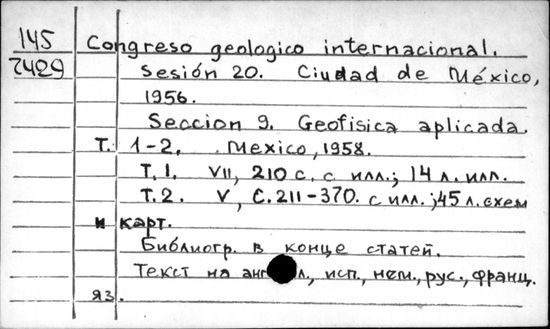 145 Congreso geologico internacional.
7429 Sesión 20. Ciudad de México,
1956.
Seccion 9. Geofisica aplicada.
Т. 1-2. Mexico, 1958.
Т.1. VII, 210 с. с илл.; 14 л. илл.
Т.2. V, С.211-370. с илл.; 45 л. схем
и карт.
Библиогр. в конце статей.
Текст на англ., исп., нем., рус., франц.
яз.